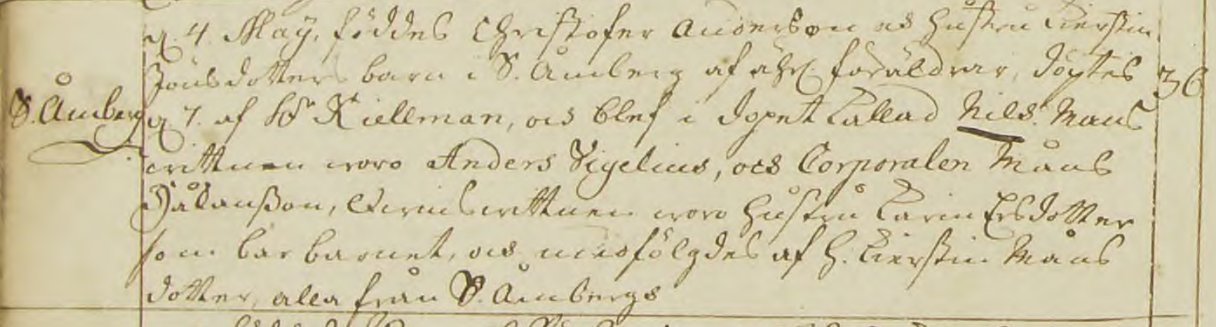 d. 4. May, föddes Christofer Anderson och hustru Kierstin
S. Åmberg
Jönsdotters barn i S. Åmberg af ächt. föräldrar, döptes
36
d. 7. af H. Kiellman, och blef i dopet kallad Nils. Mans
wittnen woro Anders Sigelius, och Corporalen Måns
Håkansson, Qwinswittnen woro hustru Karin Ersdotter
som bar barnet, och medfölgdes af H. Kierstin Måns
dotter, alla från S. Åmbergs